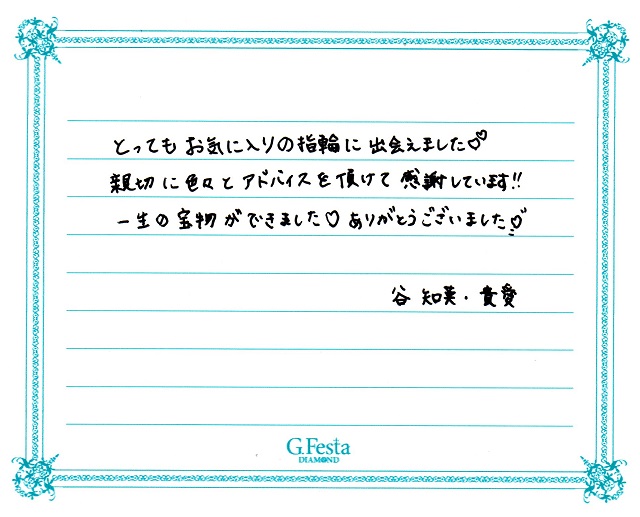 とってもお気に入りの指輪に出会えました♡
親切に色々とアドバイスを頂けて感謝しています!!
一生の宝物ができました♡ありがとうございました♡
谷 知美・貴愛
G.Festa
DIAMOND